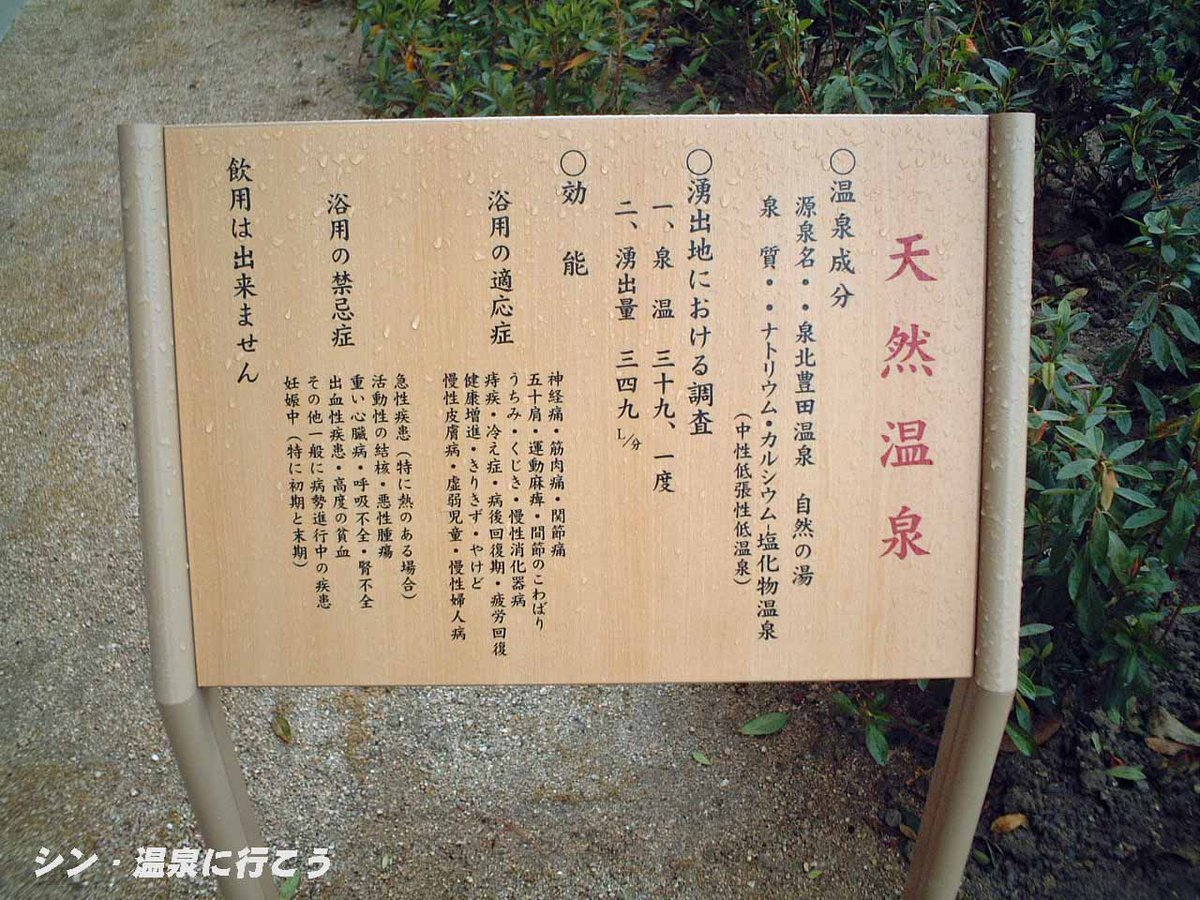 天然温泉
○温泉成分
源泉名・・泉北豊田温泉 自然の湯
泉 質・・ナトリウム・カルシウム-塩化物温泉
(中性低張性低温泉)
○湧出地における調査
一、泉 温 三十九、一度
二、湧出量 三四九 L/分
○効 能
浴用の適応症
神経痛・筋肉痛・関節痛
五十肩・運動麻痺・間節のこわばり
うちみ・くじき・慢性消化器病
痔疾・冷え症・病後回復期・疲労回復
健康増進・きりきず・やけど
慢性皮膚病・虚弱児童・慢性婦人病
浴用の禁忌症
急性疾患(特に熱のある場合)
活動性の結核・悪性腫瘍
重い心臓病・呼吸不全・腎不全
出血性疾患・高度の貧血
その他一般に病勢進行中の疾患
妊娠中(特に初期と末期)
飲用は出来ません
シン・温泉に行こう